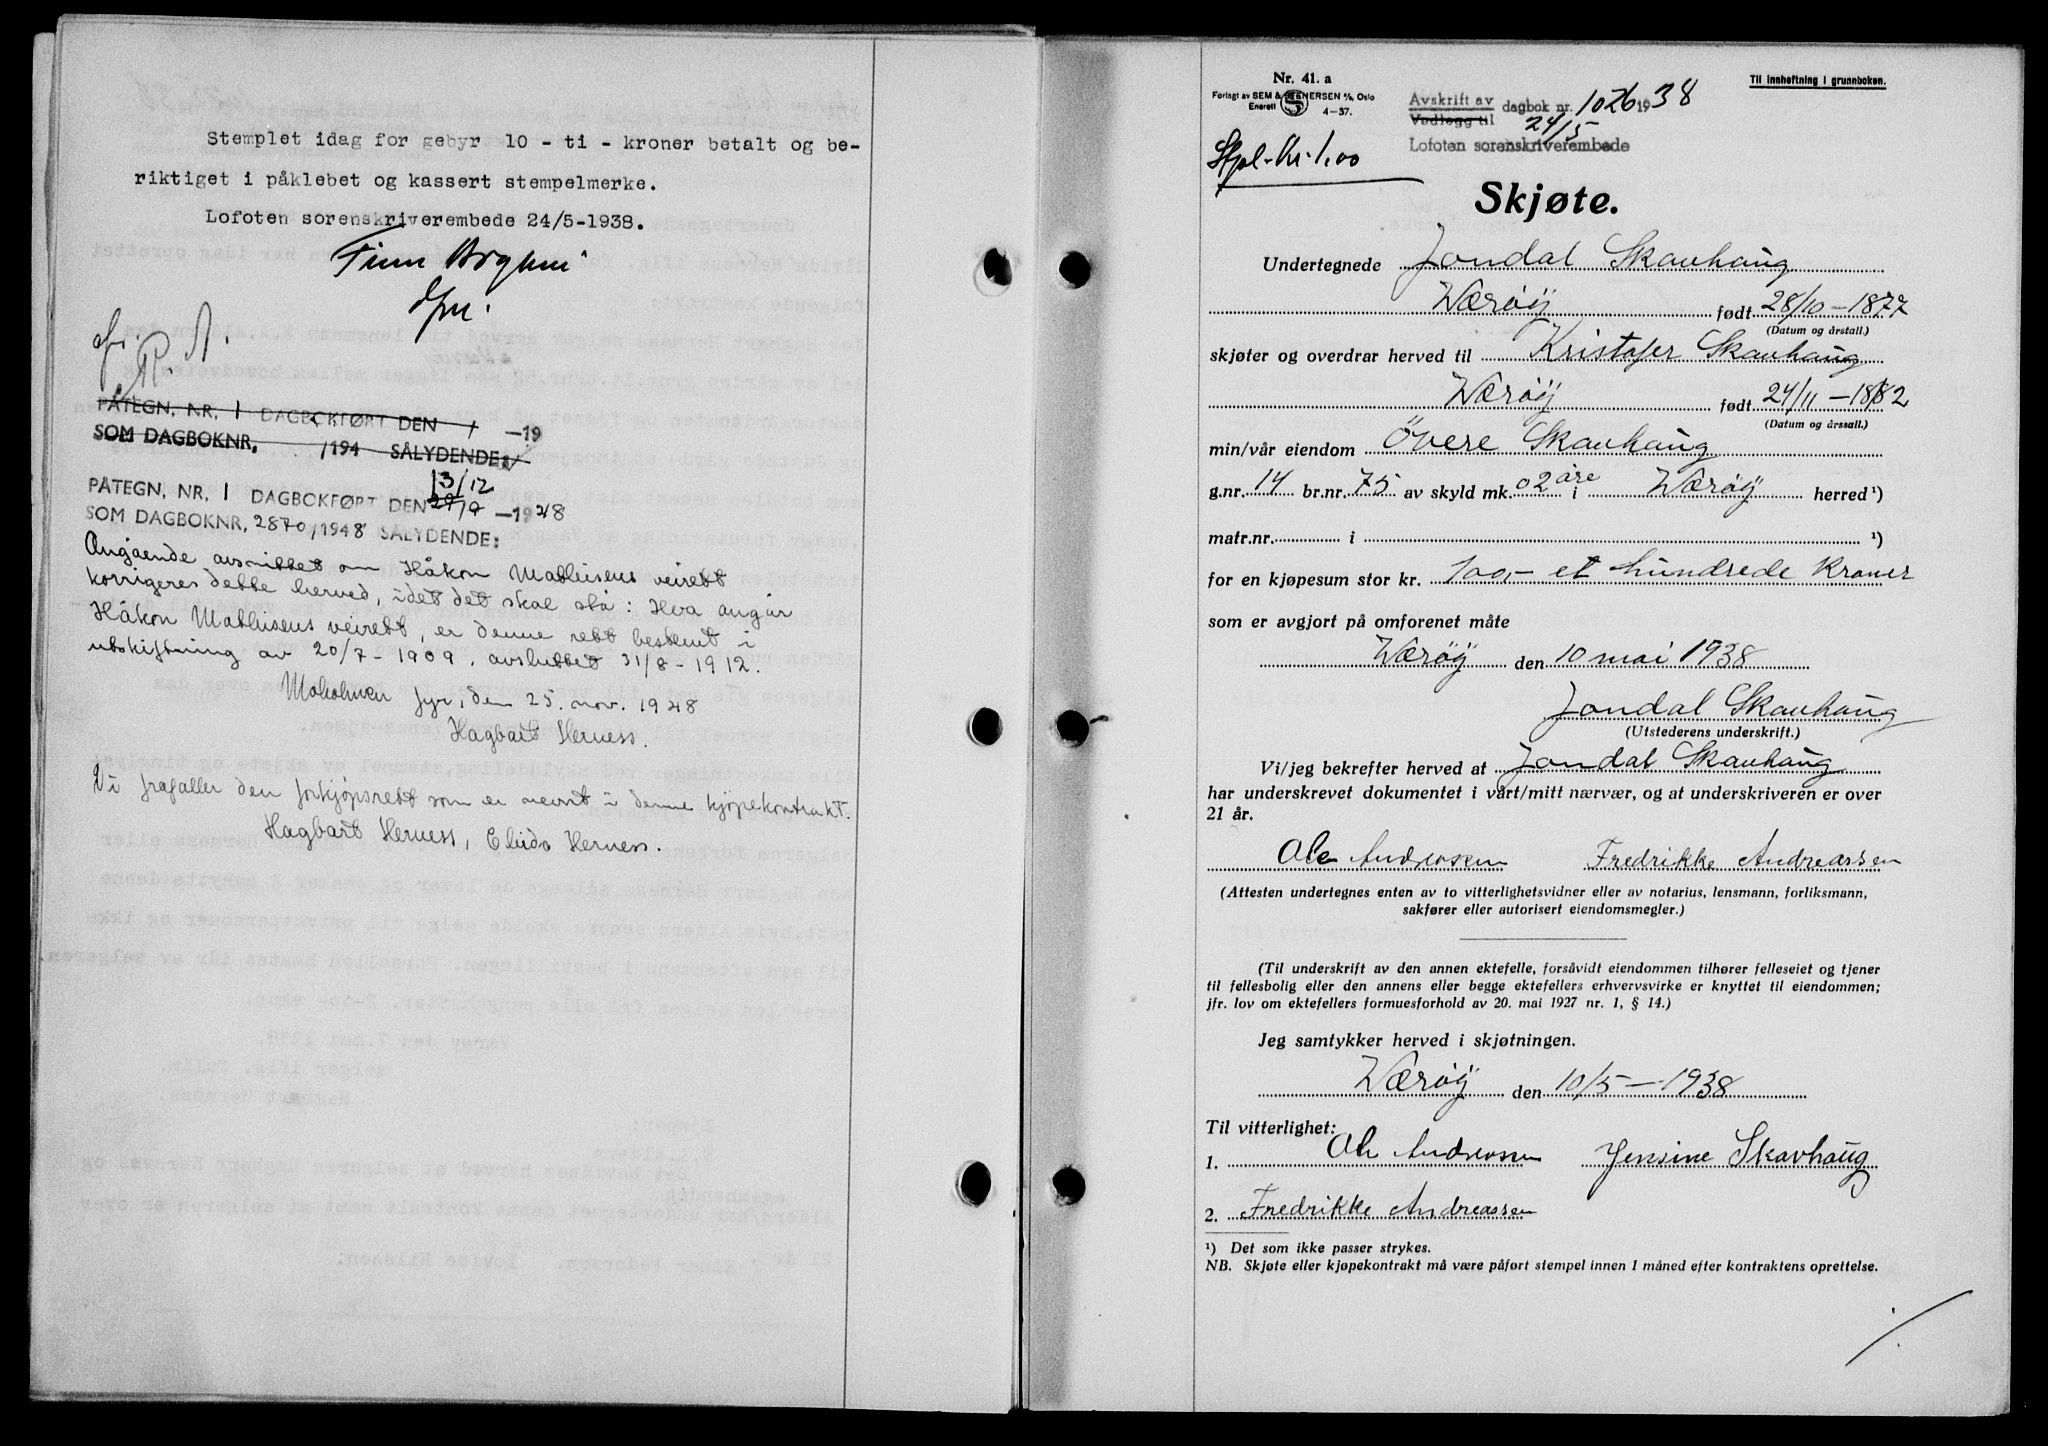 Stemplet idag for gebyr 10 - ti - kroner betalt og be-
riktiget i påklebet og kassert stempelmerke.
Lofoten sorenskriverembede 24/5-1938.
Finn
PÅTEGN. NR. 1 DAGBOKFØRT DEN / -19
SOM DAGBOKNR. /194 SÅLYDENDE:
13/12
PÅTEGN. NR. 1 DAGBOKFØRT DEN 29/9 -1948
SOM DAGBOKNR. 2870/1948 SÅLYDENDE:
Angående avsnittet om Håkon Mathisens veirett
korrigeres dette herved, idet det skal stå: Hva angår
Håkon Mathisens veirett, er denne rett bestemt i
utskiftning av 20/7-1909, avsluttet 31/8-1912.
Moholmen fyr, den 25. nov. 1948
Hagbart Herness.
Vi frafaller den forkjøpsrett som er nevnt i denne kjøpekontrakt.
Hagbart Herness, Elida Herness.
Nr. 41. a
Forlagt av SEM & STENERSEN A/S, Oslo
Enerett 4-37.
Til innheftning i grunnboken.
Avskrift av
Vedlegg til dagbok nr. 1026 1938
24/5
Lofoten sorenskriverembede
Stpl. Kr. 1,00
Skjøte.
Undertegnede Jondal Skavhaug
Værøy født 28/10-1877
(Datum og årstall.)
skjøter og overdrar herved til Kristofer Skavhaug
Værøy født 24/11-1882
(Datum og årssall.)
min/vår eiendom Övere Skavhaug
g.nr. 14 br.nr. 75 av skyld mk. 02 øre i Værøy herred ¹)
matr.nr. i ¹)
for en kjøpesum stor kr. 100,- et hundrede Kroner
som er avgjort på omforenet måte
Værøy den 10 mai 1938
Jondal Skavhaug
(Utstederens underskrift.)
Vi/jeg bekrefter herved at Jondal Skavhaug
har underskrevet dokumentet i vårt/mitt nærvær, og at underskriveren er over
21 år.
Ole Andreassen Fredrikke Andreassen
(Attesten undertegnes enten av to vitterlighetsvidner eller av notarius, lensmann, forliksmann,
sakfører eller autorisert eiendomsmegler.)
(Til underskrift av den annen ektefelle, forsåvidt eiendommen tilhører felleseiet og tjener
til fellesbolig eller den annens eller begge ektefellers erhvervsvirke er knyttet til eiendommen;
jfr. lov om ektefellers formuesforhold av 20. mai 1927 nr. 1, § 14.)
Jeg samtykker herved i skjøtningen.
Værøy den 10/5-1938
Til vitterlighet:
1. Ole Andreassen Jensine Skavhaug
2. Fredrikke Andreassen
¹) Det som ikke passer strykes.
NB. Skjøte eller kjøpekontrakt må være påført stempel innen 1 måned efter kontraktens oprettelse.